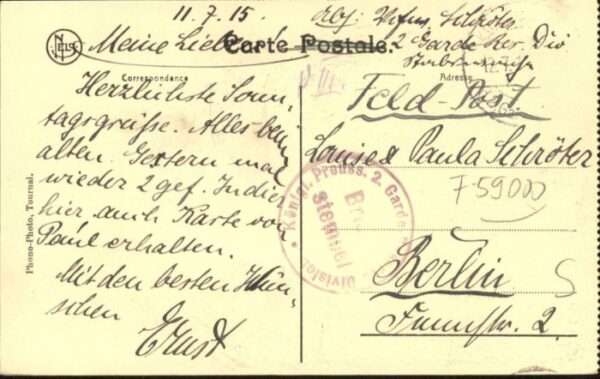 11.7.15.
Abs:
Schröter
2 Garde Res. Div
Meine Lieben
Carte Postale
NELS
Correspondance
Adresse
Herzlichste Sonn-
tagsgrüsse. Alles beim
alten. Gestern mal
wieder 2 gef. Indier
hier auch Karte von
Paul erhalten.
Mit den besten Wün-
schen
Ernst
Feld-Post.
Louise & Paula Schröter
7-59000
Berlin
5
2.
Königl. Preuss. 2. Garde
Division
Brief
Stempel
Phono-Photo, Tournai.